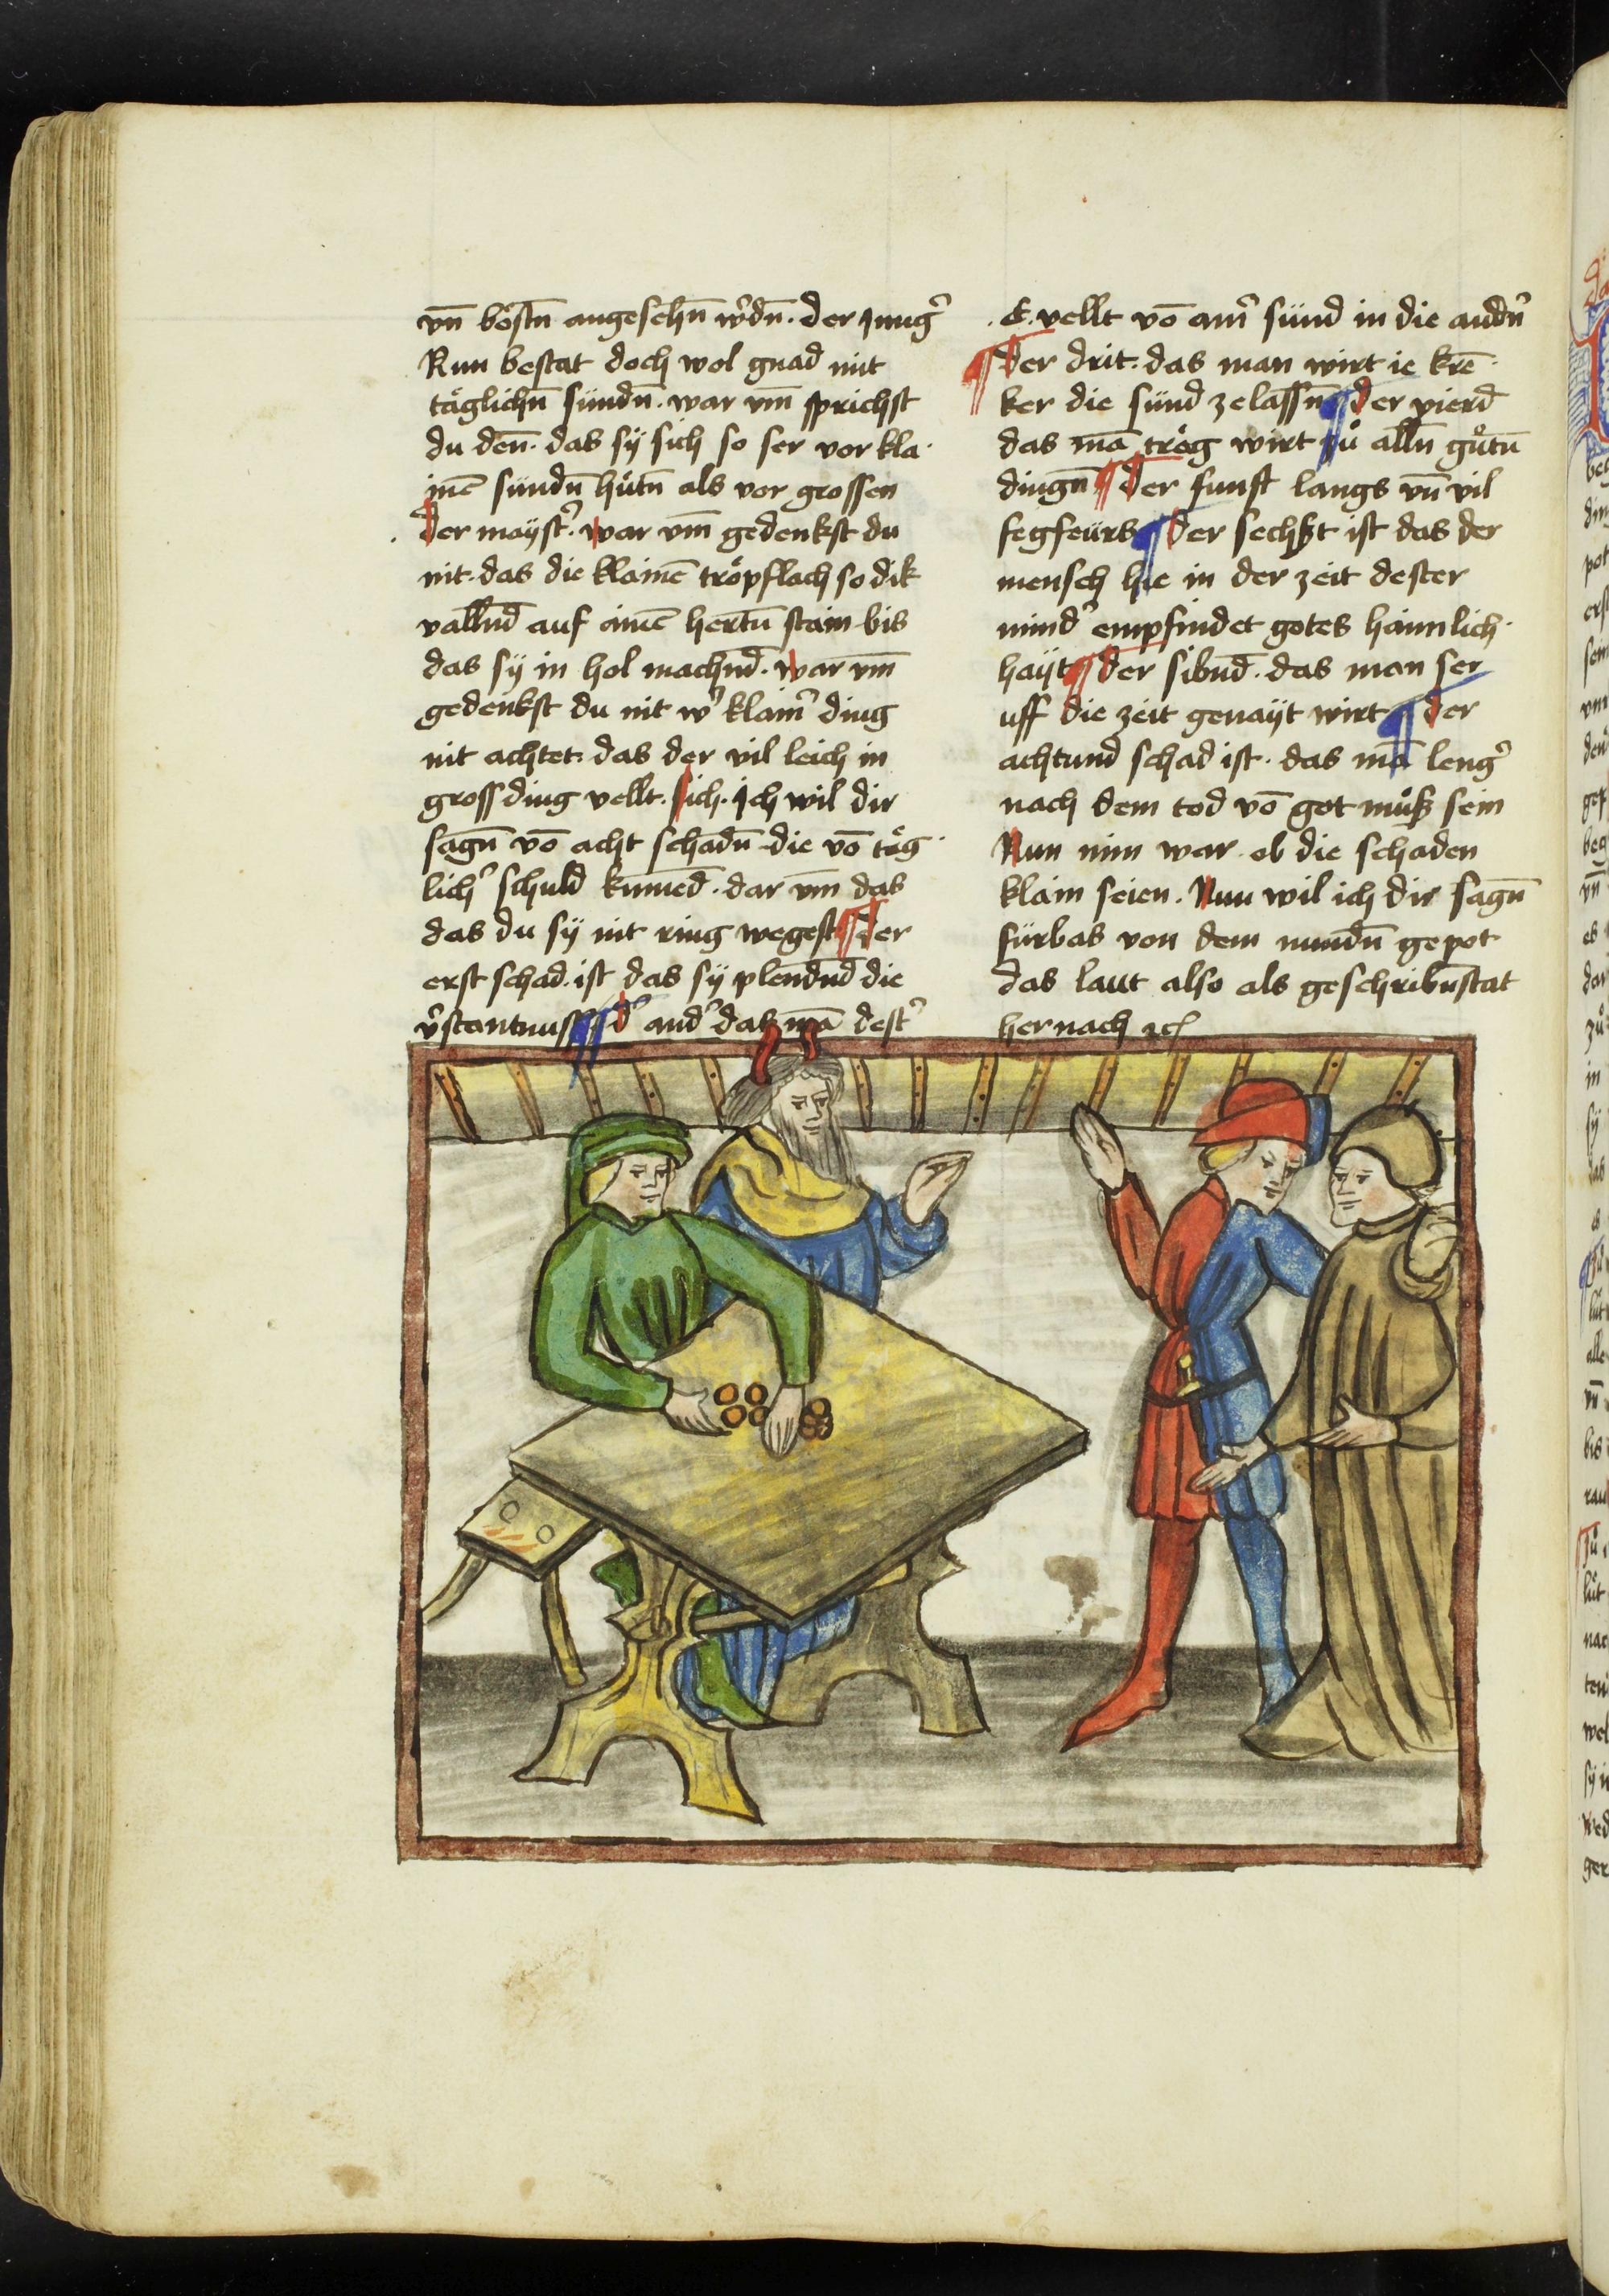 vn̄ bo̊stn̄ angesehn̄ w'dn̄. der jung'
Nun bestat doch wol gnad mit
täglichn̄ sündn̄. war vm̄ sprichst
du den̄. das sy̆ sich so ser vor kla
inē sündn̄ hu̇tn̄ als vor grossen
der mayst'. war vm̄ gedenkst du
nit. das die klainē tröpflach so dik
vallnd̄ auf ainē hertn̄ stain bis
das sy̆ in hol machnd̄. war vm̄
gedenkst du nit w' klain' ding
nit achtet. das der vil leich in
gross ding vellt. sich. Ich wil dir
sagn̄ vō acht schadn̄ die vō täg
lich' schuld kumēd. dar vm̄ das
das du sy̆ nit ring wegest ¶ der
erst schad. ist das sy̆ plendnd̄ die
v'stantnuss ¶ d' and' das mā dest'
E. vellt vō ain' sünd in die andn̄'
¶ der drit. das man wirt ie krē
ker die sünd zelassn̄ ¶ der vierd
das mā träg wirt zů alln̄ gůtn̄
dingn̄ ¶ der funft langs vn̄ vil
fegfeürs ¶ der sechßt ist das der
mensch hie in der zeit dester
mind' empfindet gotes haimlich
hayt ¶ der sibnd̄. das man ser
uff die zeit genayt wirt ¶ der
achtund schad ist. das mā leng'
nach dem tod vō got můß sein
Nun nim war. ob die schaden
klain seien. Nun wil ich dir sagn̄
fürbas von dem nundn̄ gepot
das laut also als geschribn̄ stat
hernach ꝛc